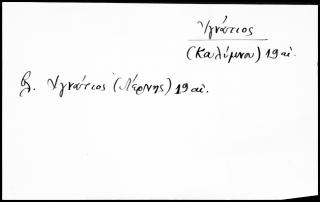 Ἰγνάτιος
(Καλύμνου) 19 αἰ.
βλ. Ἰγνάτιος (Λέρνης) 19 αἰ.